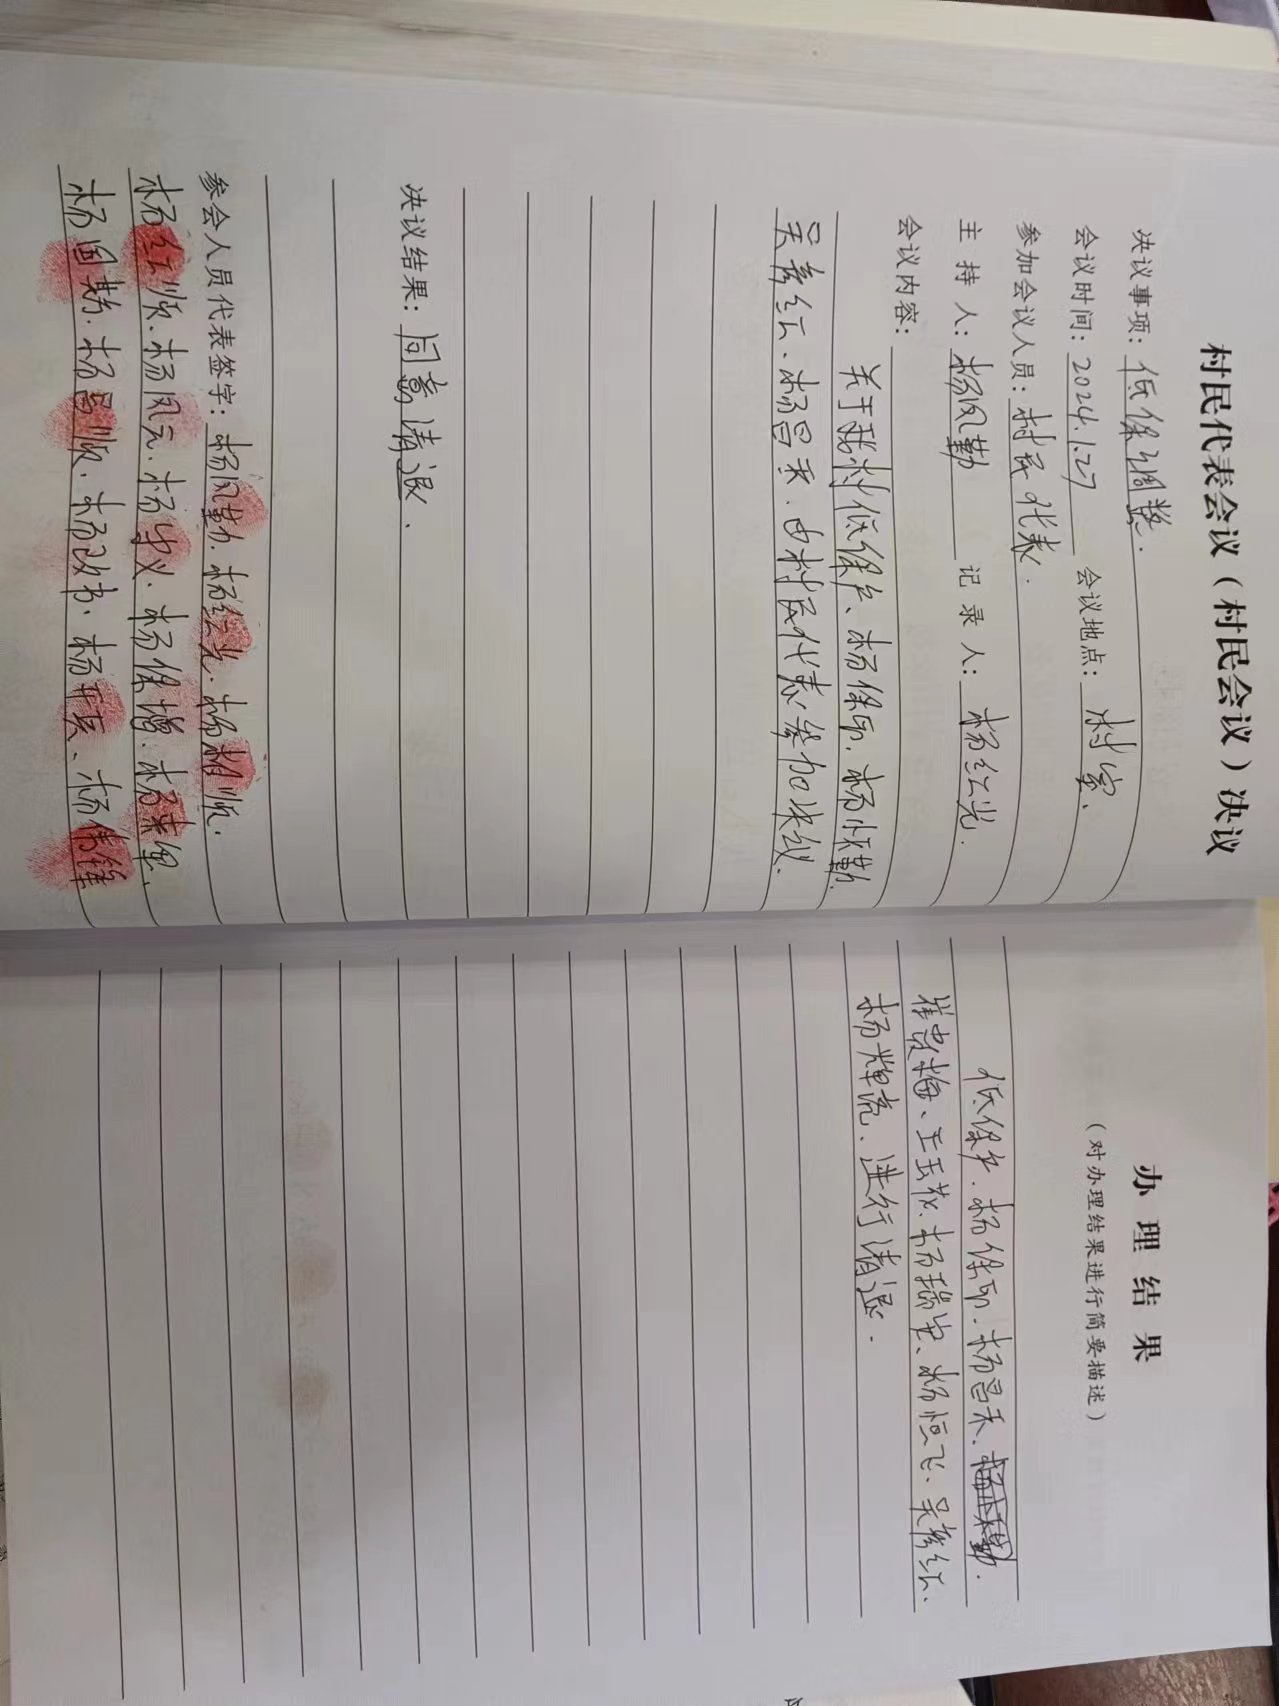 村民代表会议（村民会议）决议
决议事项：低保调整.
会议时间：2024.1.27 会议地点：村室.
参加会议人员：村民代表.
主持人：杨凤勤 记录人：杨红光.
会议内容：
关于我村低保户、杨保印.杨恒勤.
吴彦红.杨昌禾.由村民代表参加决议.
决议结果：同意清退.
参会人员代表签字：杨凤勤.杨红光.杨相顺.
杨红顺.杨凤元.杨守义.杨保增.杨来
杨国勤.杨昌顺.杨改书.杨开兵、杨伟锋
办理结果
（对办理结果进行简要描述）
低保户.杨保印.杨昌禾.
崔贵梅、王玉花.杨瑞 、杨恒飞、吴彦红、
杨辉亮、进行清退.